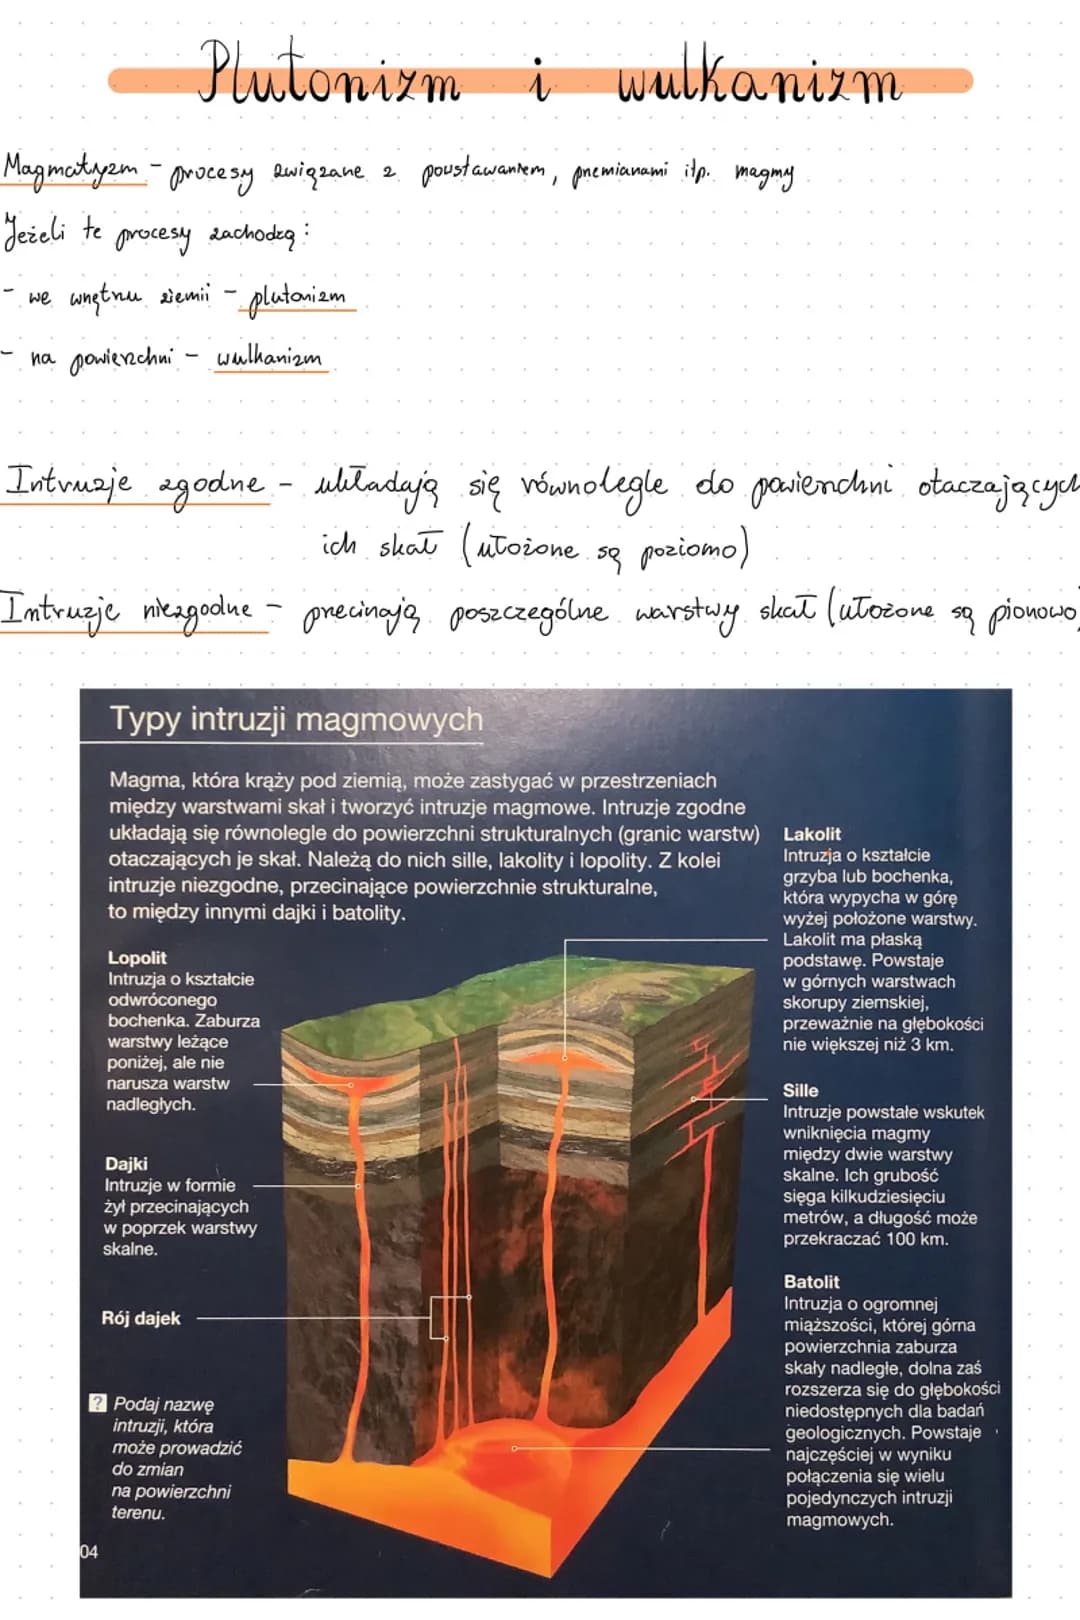 Plutonizm i wulkanizm
Magmatyzm - procesy związane z powstawaniem, przemianami itp. magmy
Jeżeli te procesy zachodzą:
- we wnętrzu ziemii - plutonizm
- na powierzchni - wulkanizm
Intruzje zgodne - układają się równolegle do powierzchni otaczających
ich skał (ułożone są poziomo)
Intruzje niezgodne - przecinają poszczególne warstwy skał (ułożone są pionowo)
Typy intruzji magmowych
Magma, która krąży pod ziemią, może zastygać w przestrzeniach
między warstwami skał i tworzyć intruzje magmowe. Intruzje zgodne
układają się równolegle do powierzchni strukturalnych (granic warstw)
otaczających je skał. Należą do nich sille, lakolity i lopolity. Z kolei
intruzje niezgodne, przecinające powierzchnie strukturalne,
to między innymi dajki i batolity.
Lopolit
Intruzja o kształcie
odwróconego
bochenka. Zaburza
warstwy leżące
poniżej, ale nie
narusza warstw
nadległych.
Dajki
Intruzje w formie
żył przecinających
w poprzek warstwy
skalne.
Rój dajek
? Podaj nazwę
intruzji, która
może prowadzić
do zmian
na powierzchni
terenu.
04
Lakolit
Intruzja o kształcie
grzyba lub bochenka,
która wypycha w górę
wyżej położone warstwy.
Lakolit ma płaską
podstawę. Powstaje
w górnych warstwach
skorupy ziemskiej,
przeważnie na głębokości
nie większej niż 3 km.
Sille
Intruzje powstałe wskutek
wniknięcia magmy
między dwie warstwy
skalne. Ich grubość
sięga kilkudziesięciu
metrów, a długość może
przekraczać 100 km.
Batolit
Intruzja o ogromnej
miąższości, której górna
powierzchnia zaburza
skały nadległe, dolna zaś
rozszerza się do głębokości
niedostępnych dla badań
geologicznych. Powstaje
najczęściej w wyniku
połączenia się wielu
pojedynczych intruzji
magmowych.